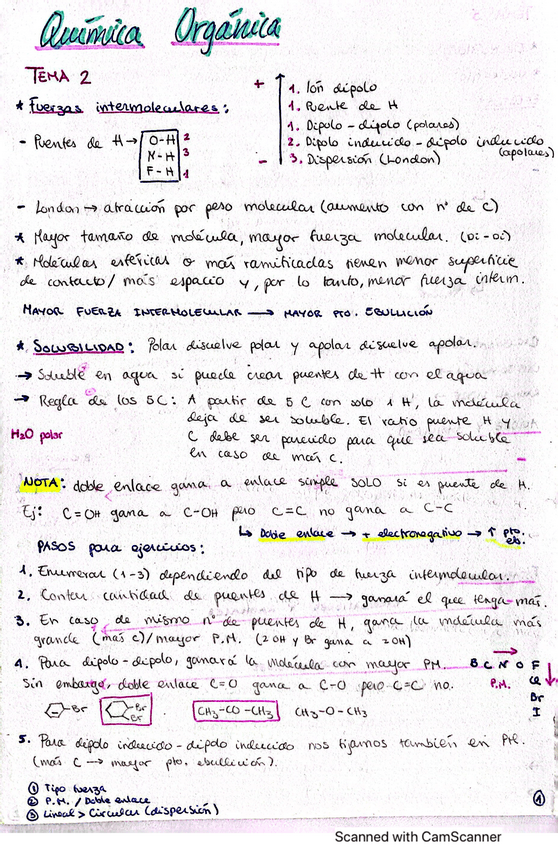 Química Orgánica
TEMA 2
* Fuerzas intermoleculares:
- Puentes de H → O-H 2
N-H 3
F-H 1
+
1. Ión dipolo
1. Puente de H
1. Dipolo - dipolo (polares)
2. Dipolo inducido - dipolo inducido (apolares)
- 3. Dispersión (London)
- London → atracción por peso molecular (aumento con nº de C)
* Mayor tamaño de molécula, mayor fuerza molecular. (Di-Di)
* Moléculas esféricas o más ramificadas tienen menor superficie
de contacto/ más espacio y, por lo tanto, menor fuerza interm.
MAYOR FUERZA INTERMOLECULAR → MAYOR PTO. EBULLICIÓN
* SOLUBILIDAD: Polar disuelve polar y apolar disuelve apolar.
→ Soluble en agua si puede crear puentes de H con el agua
→ Regla de los 5C: A partir de 5 C con solo 1 H, la molécula
deja de ser soluble. El ratio puente H y
H2O polar
C debe ser parecido para que sea soluble
en caso de más C.
NOTA: doble enlace gana a enlace simple SOLO si es puente de H.
Ej: C=OH gana a C-OH pero C=C no gana a C-C
↳ Doble enlace → + electronegativo → ↑ pto. eb.
PASOS para ejercicios:
1. Enumerar (1-3) dependiendo del tipo de fuerza intermolecular.
2. Contar cantidad de puentes de H → ganará el que tenga más.
3. En caso de mismo nº de puentes de H, gana la molécula más
grande (más C)/mayor P.M. (2OH y Br gana a 2OH)
4. Para dipolo-dipolo, ganará la molécula con mayor PM.
B C N O F
Cl
Br
I
P.M.
Sin embargo, doble enlace C=O gana a C-O pero C=C no.
Br Br Br CH3-CO-CH3 CH3-O-CH3
5. Para dipolo inducido-dipolo inducido nos fijamos también en PM.
(más C → mayor pto. ebullición).
① Tipo fuerza
② P.M. / Doble enlace
③ Lineal > Circular (dispersión)
①
Scanned with CamScanner